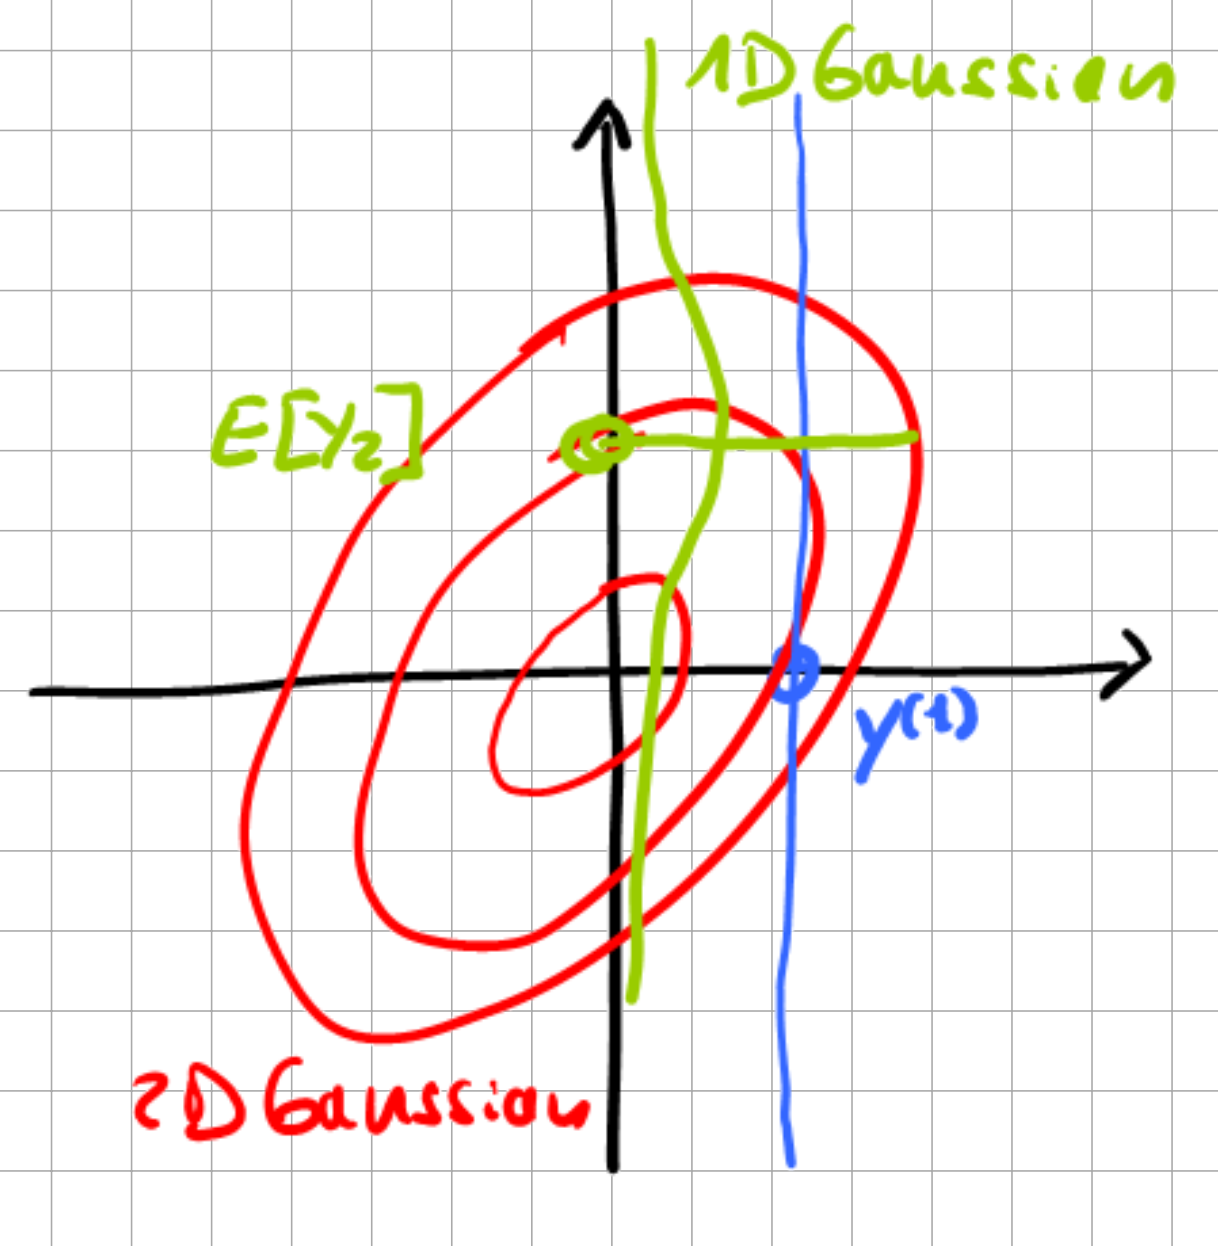 1D Gaussian
E[Y₂]
y(t)
2D Gaussian